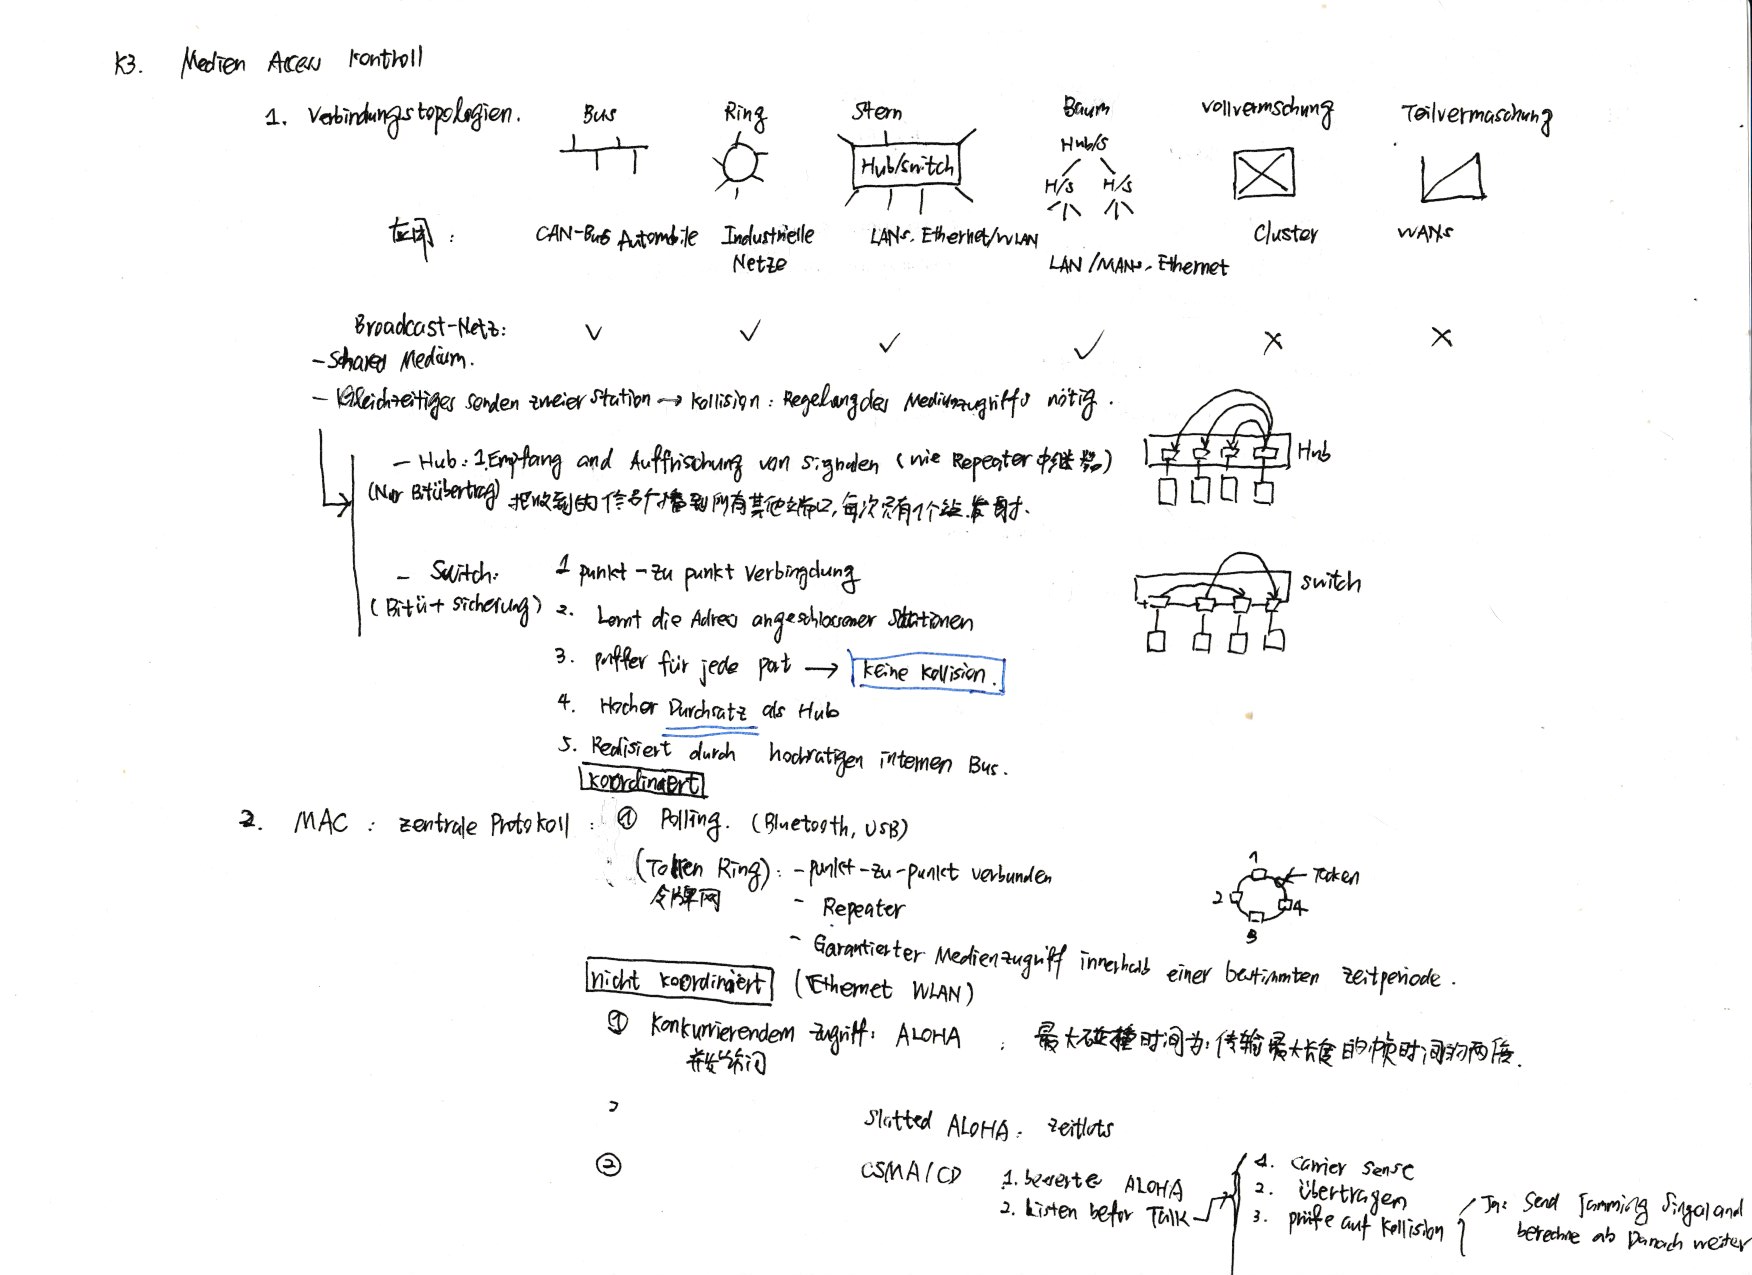 K3. Medien Access Kontroll
1. Verbindungstopologien. Bus Ring Stern Baum Vollvermschung Teilvermaschung
Hub/switch
Hub/S
H/S H/S
应用: CAN-Bus Automobile Industrielle Netze LANs, Ethernet/WLAN LAN/MANs, Ethernet Cluster WANs
Broadcast-Netz: ✓ ✓ ✓ ✓ × ×
- Shared Medium.
- Gleichzeitiges senden zweier Station → Kollision: Regelung des Mediumzugriffs nötig.
- Hub: 1. Empfang and Auffrischung von Signalen (wie Repeater 中继器)
(Nur Bitübertrag) 把收到的信号广播到所有其他端口, 每次只有1个站发射.
Hub
- Switch: 1 punkt-zu punkt Verbingdung
(Bitü + Sicherung) 2. Lernt die Adress angeschlossener Stationen
switch
3. puffer für jede port → Keine Kollision.
4. Hocher Durchsatz als Hub
5. Realisiert durch hochratigen internen Bus.
koordiniert
2. MAC: zentrale Protokoll: ① Polling. (Bluetooth, USB)
(Token Ring): - punkt-zu-punkt verbunden
令牌网
- Repeater
- Garantierter Medienzugriff innerhalb einer bestimmten zeitperiode.
1 Token
2 4
3
nicht koordiniert (Ethernet WLAN)
① Konkurrierendem Zugriff: ALOHA: 最大碰撞时间为: 传输最大长度的帧时间的两倍.
并发访问
Slotted ALOHA: Zeitlots
② CSMA/CD 1. ALOHA
2. Listen befor Talk
1. Carrier Sense
2. übertragen
3. prüfe auf Kollision
Ja: Send Jamming Singal and
berechne ab Danach weiter